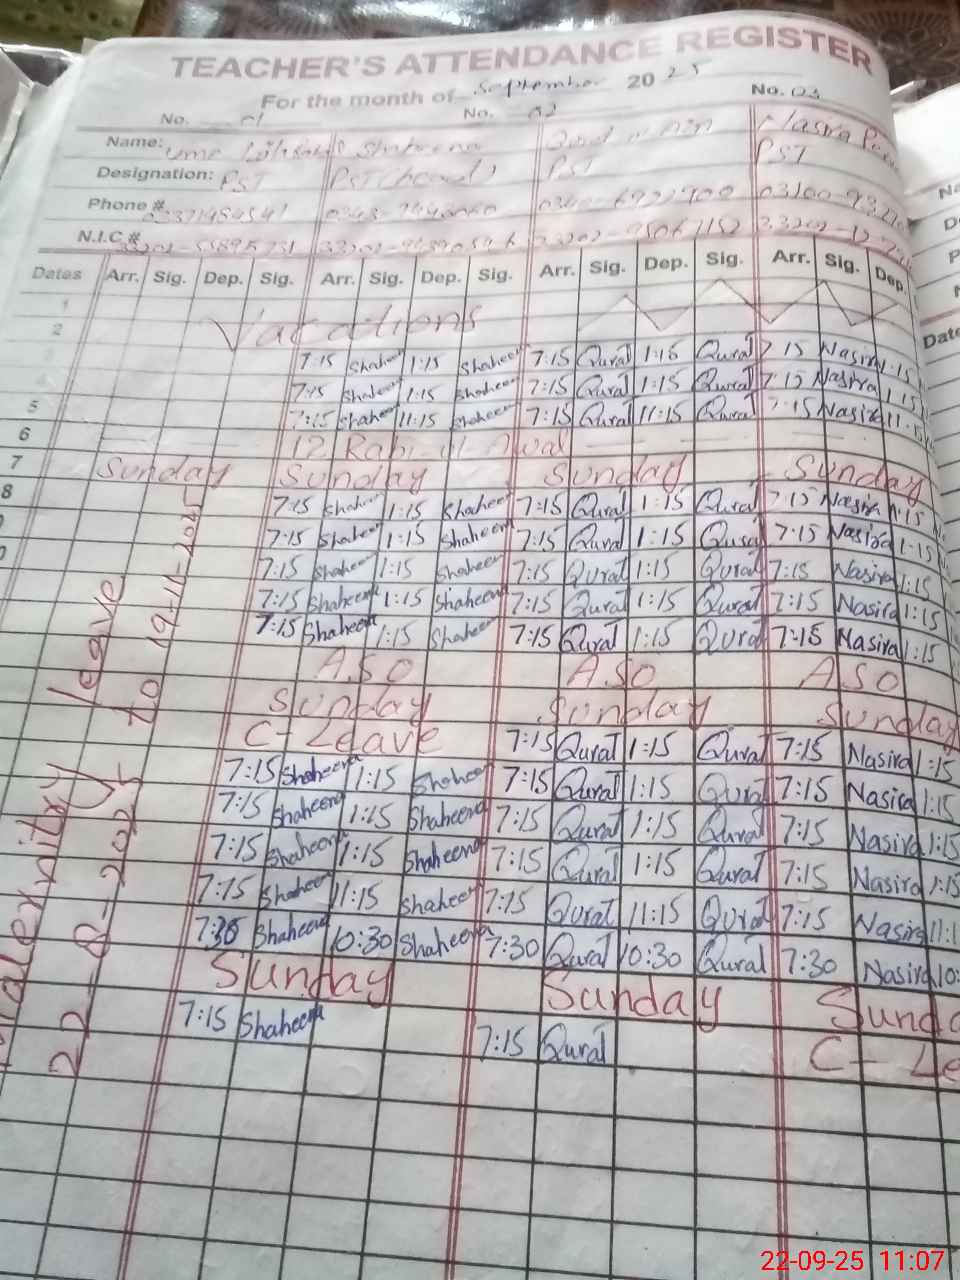 TEACHER'S ATTENDANCE REGISTER
For the month of September 2025
No. 01 No. 02 No. 03
Name: Shaheena Nasira
Designation: PST PST (head) PST PST
Phone #
N.I.C #
Dates Arr. Sig. Dep. Sig. Arr. Sig. Dep. Sig. Arr. Sig. Dep. Sig. Arr. Sig. Dep.
1
2 Vacations
7:15 Shaheena 1:15 Shaheena 7:15 Qurat 1:15 Qurat 7:15 Nasira 1:15
7:15 Shaheena 1:15 Shaheena 7:15 Qurat 1:15 Qurat 7:15 Nasira 1:15
5 7:15 Shaheena 11:15 Shaheena 7:15 Qurat 11:15 Qurat 7:15 Nasira 11:15
6 12 Rabi-ul-Awal
7 Sunday Sunday Sunday Sunday
8 7:15 Shaheena 1:15 Shaheena 7:15 Qurat 1:15 Qurat 7:15 Nasira 1:15
7:15 Shaheena 1:15 Shaheena 7:15 Qurat 1:15 Qurat 7:15 Nasira 1:15
7:15 Shaheena 1:15 Shaheena 7:15 Qurat 1:15 Qurat 7:15 Nasira 1:15
7:15 Shaheena 1:15 Shaheena 7:15 Qurat 1:15 Qurat 7:15 Nasira 1:15
7:15 Shaheena 1:15 Shaheena 7:15 Qurat 1:15 Qurat 7:15 Nasira 1:15
A.S.O A.S.O A.S.O
Sunday Sunday Sunday
C-Leave 7:15 Qurat 1:15 Qurat 7:15 Nasira 1:15
7:15 Shaheena 1:15 Shaheena 7:15 Qurat 1:15 Qurat 7:15 Nasira 1:15
7:15 Shaheena 1:15 Shaheena 7:15 Qurat 1:15 Qurat 7:15 Nasira 1:15
7:15 Shaheena 1:15 Shaheena 7:15 Qurat 1:15 Qurat 7:15 Nasira 1:15
7:15 Shaheena 11:15 Shaheena 7:15 Qurat 11:15 Qurat 7:15 Nasira 11:1
Shaheena 10:30 Shaheena 7:30 Qurat 10:30 Qurat 7:30 Nasira 10:
Sunday Sunday Sunda
7:15 Shaheena 7:15 Qurat C-Le
Maternity leave
22-8-2025 to 19-11-2025
22-09-25 11:07